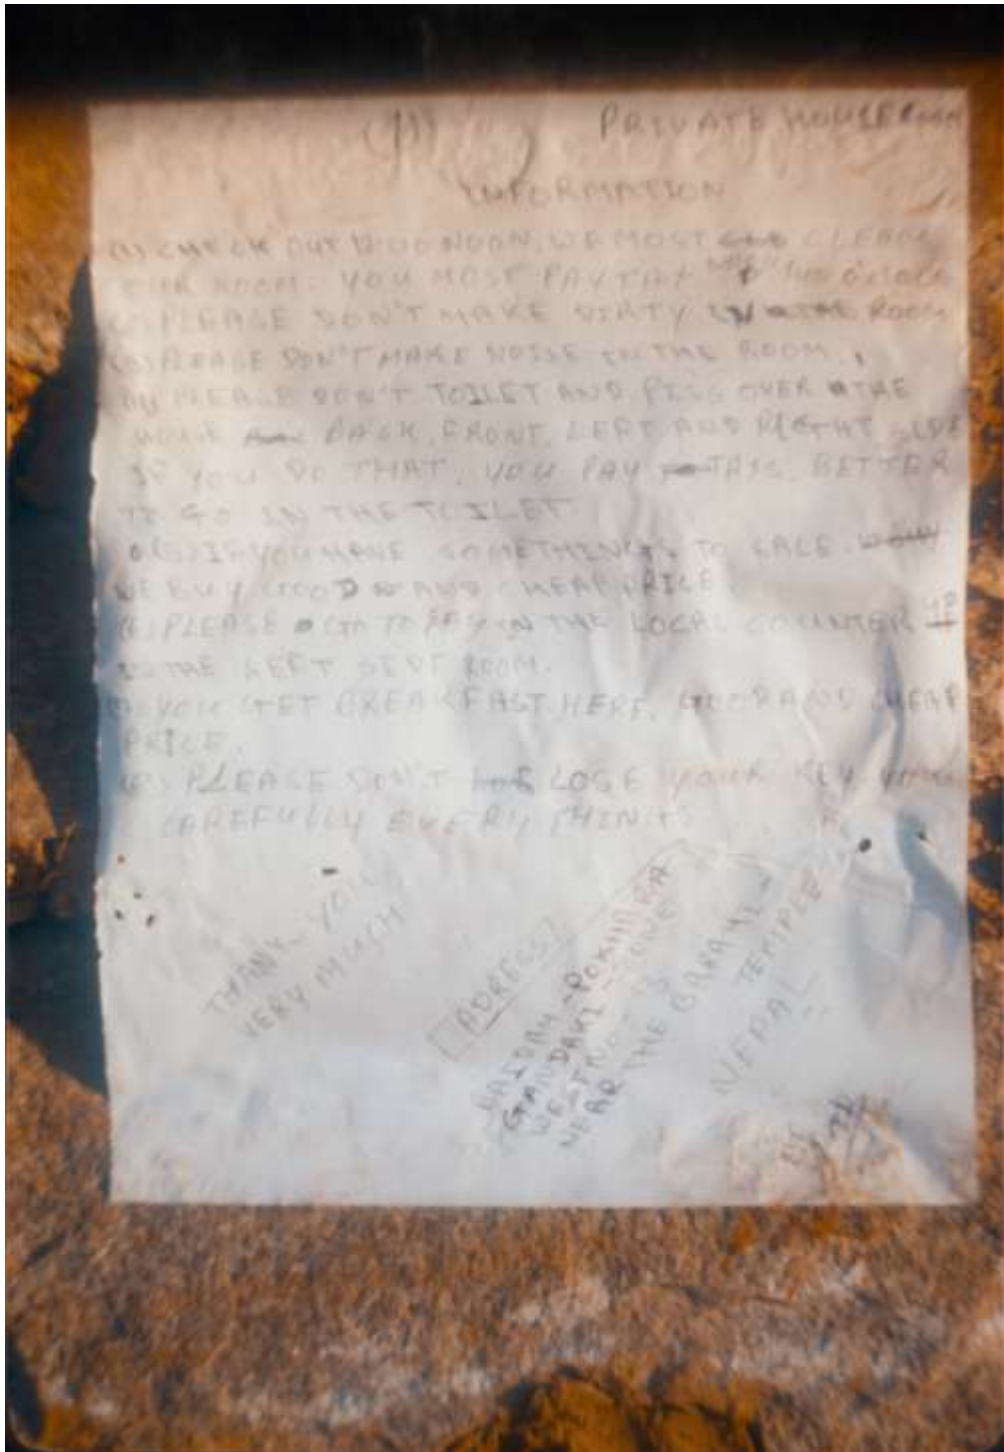 PRIVATE HOUSE ROOM
INFORMATION
(1) CHECK OUT 12:00 NOON. WE MOST CLEAN
OUR ROOM. YOU MOST PAY
PLEASE DON'T MAKE DIRTY IN THE ROOM
(3) PLEASE DON'T MAKE NOISE IN THE ROOM.
(4) PLEASE DON'T TOILET AND PISS OVER THE
HOUSE BACK, FRONT, LEFT AND RIGHT SIDE
IF YOU DO THAT, YOU PAY THIS. BETTER
TO GO IN THE TOILET.
(5) IF YOU HAVE SOMETHINGS TO SALE.
WE BUY GOOD AND CHEAP PRICE.
(6) PLEASE GO TO PAY IN THE LOCAL COUNTER
IS THE LEFT SIDE ROOM.
(7) YOU GET BREAKFAST HERE, GOOD AND CHEAP
PRICE.
(8) PLEASE DON'T LOSE YOUR KEY
CAREFULLY EVERY THING
THANK-YOU
VERY MUCH
ADRESS
BAIDAM-POKHARA
GANDAKI-ZONE
NEAR THE BARAHI-
TEMPLE
NEPAL